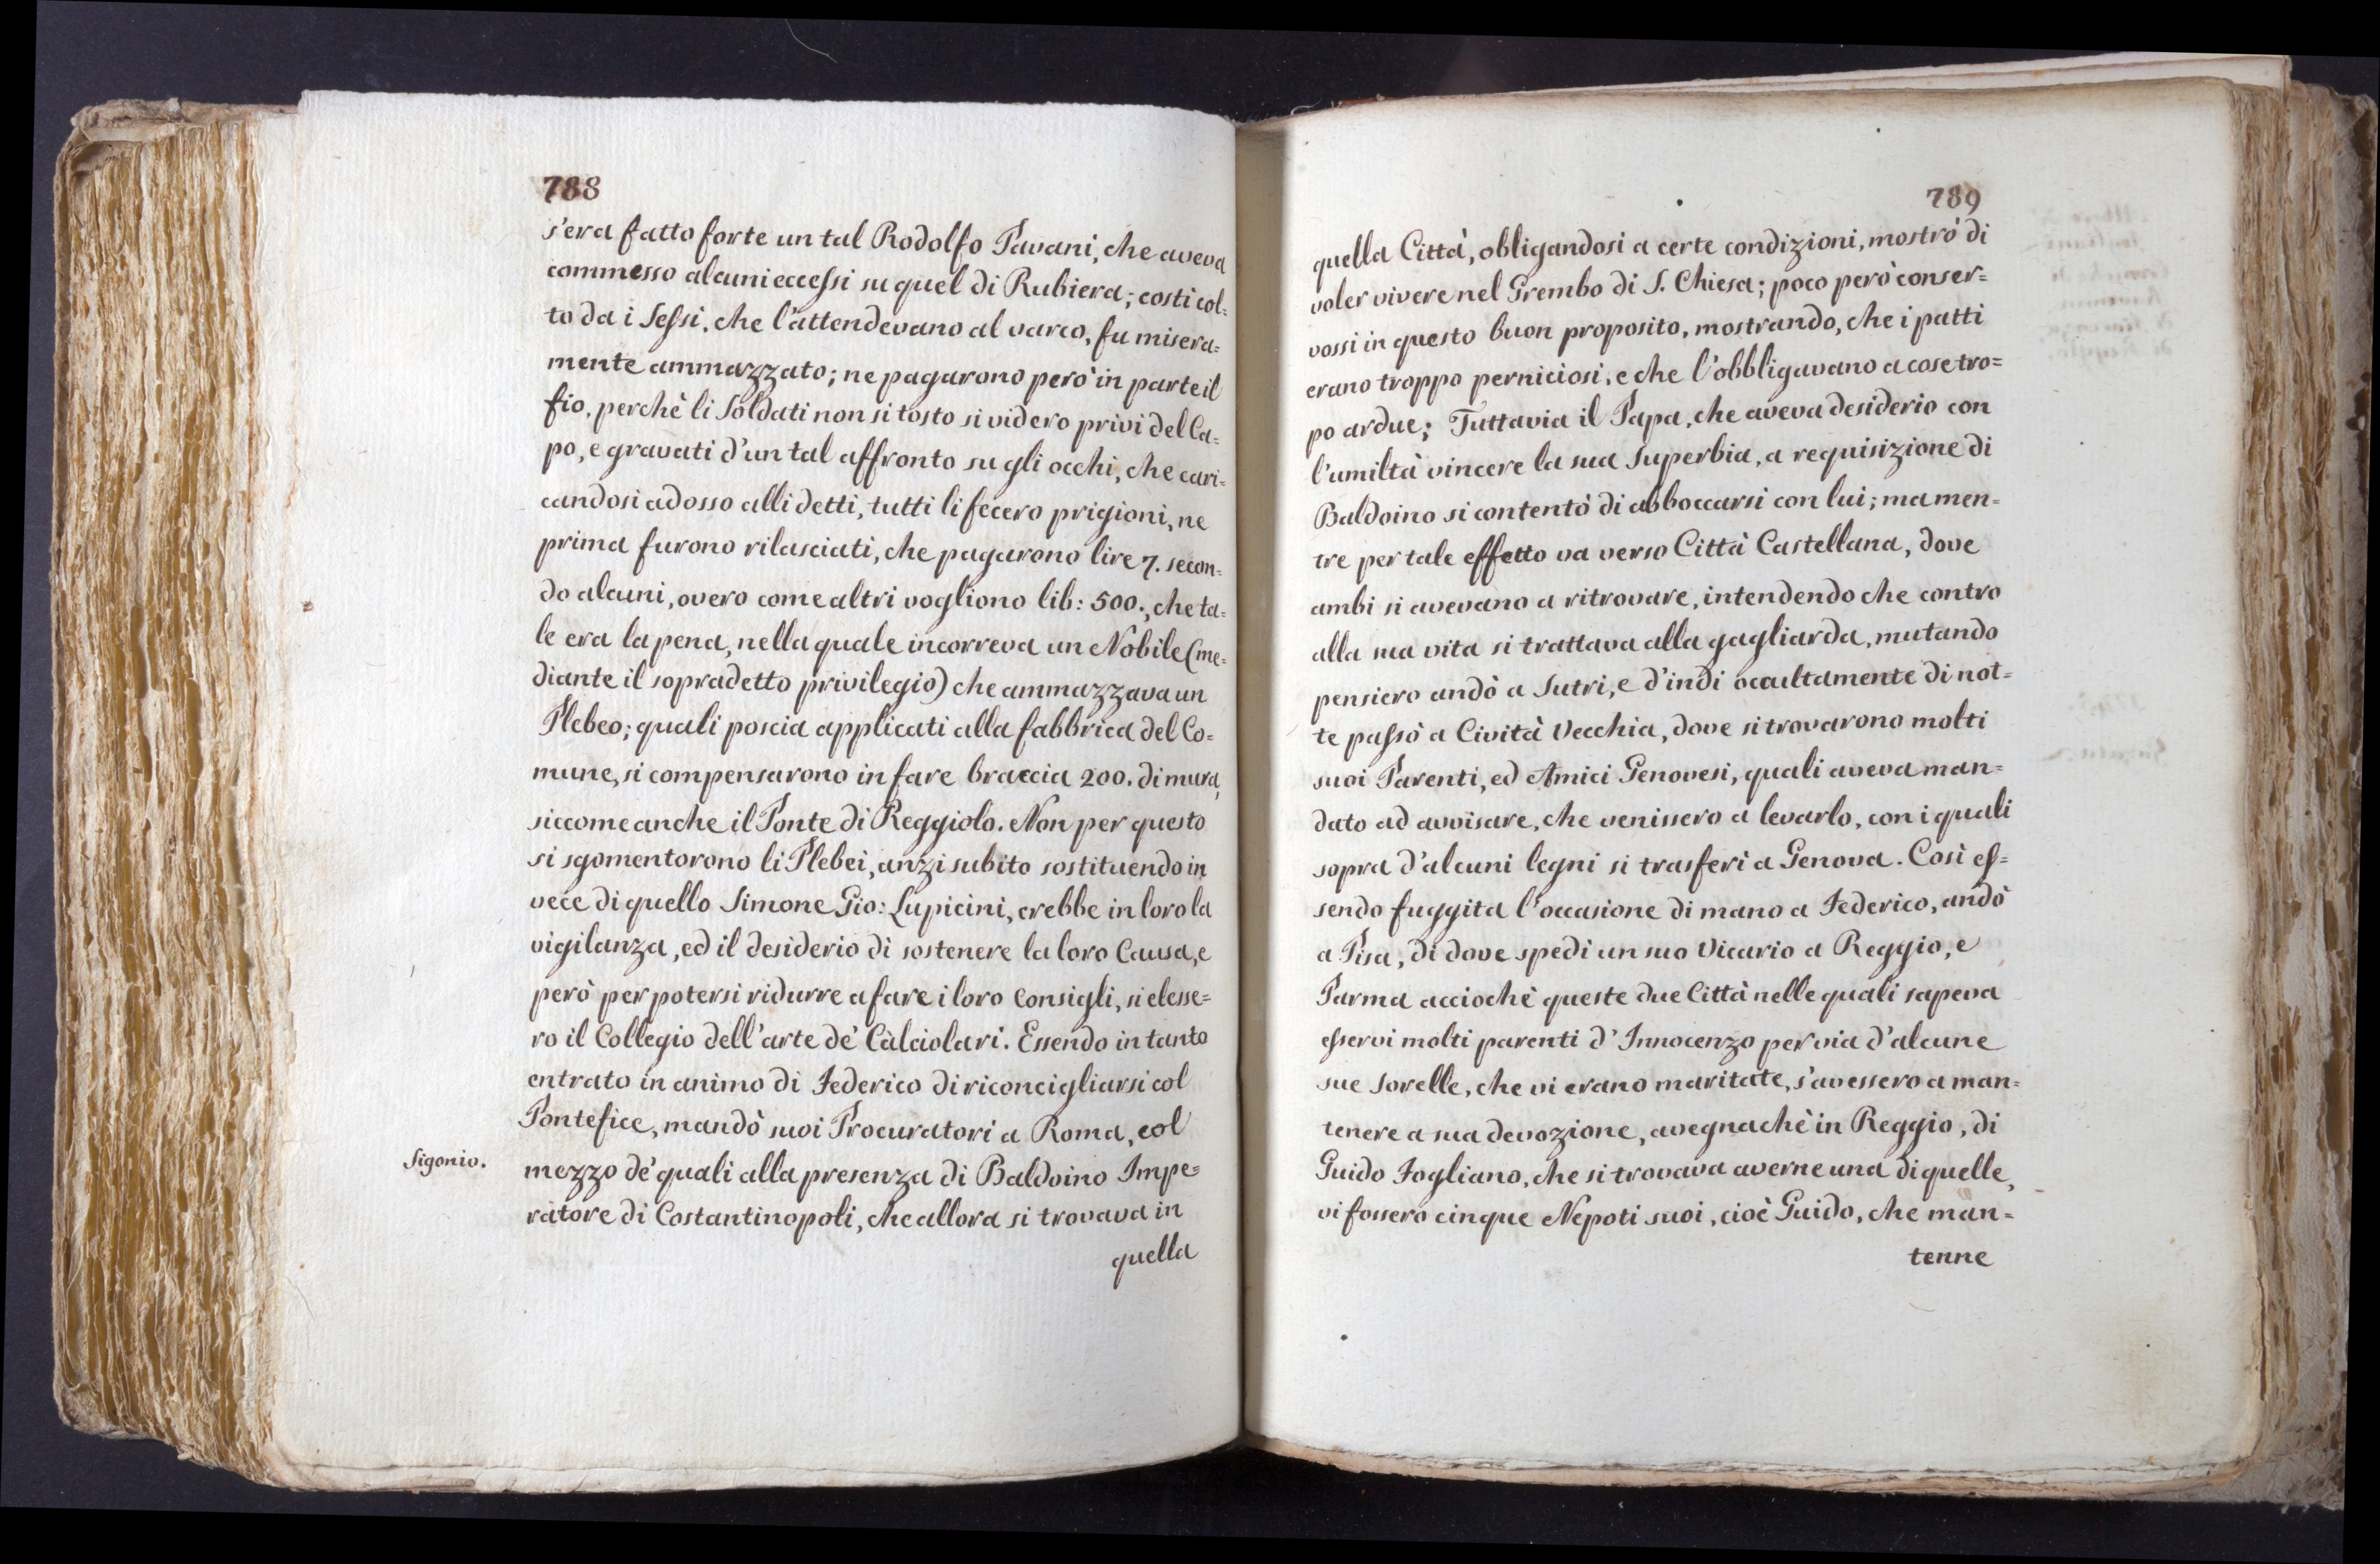 788
s'era fatto forte un tal Rodolfo Pavani, che aveva
commesso alcuni eccessi su quel di Rubiera; costi col=
to da i Sessi, che l'attendevano al varco, fu misera=
mente ammazzato; ne pagarono però in parte il
fio, perchè li Soldati non si tosto si videro privi del Ca=
po, e gravati d'un tal affronto su gli occhi, che cari=
candosi adosso alli detti, tutti li fecero prigioni, ne
prima furono rilasciati, che pagarono lire 7. secon=
do alcuni, overo come altri vogliono lib: 500., che ta=
le era la pena, nella quale incorreva un Nobile (me=
diante il sopradetto privilegio) che ammazzava un
Plebeo; quali poscia applicati alla fabbrica del Co=
mune, si compensarono in fare braccia 200. di mura,
siccome anche il Ponte di Reggiolo. Non per questo
si sgomentorono li Plebei, anzi subito sostituendo in
vece di quello Simone Gio: Lupicini, crebbe in loro la
vigilanza, ed il desiderio di sostenere la loro Causa, e
però per potersi ridurre a fare i loro Consigli, si elesse=
ro il Collegio dell'arte de' Càlciolari. Essendo in tanto
entrato in animo di Federico di riconcigliarsi col
Pontefice, mandò suoi Procuratori a Roma, col
Sigonio.
mezzo de' quali alla presenza di Baldoino Impe=
ratore di Costantinopoli, che allora si trovava in
quella
789
quella Città, obligandosi a certe condizioni, mostrò di
voler vivere nel Grembo di S. Chiesa; poco però conser=
vossi in questo buon proposito, mostrando, che i patti
erano troppo perniciosi, e che l'obbligavano a cose tro=
po ardue; Tuttavia il Papa, che aveva desiderio con
l'umiltà vincere la sua Superbia, a requisizione di
Baldoino si contentò di abboccarsi con lui; ma men=
tre per tale effetto va verso Città Castellana, dove
ambi si avevano a ritrovare, intendendo che contro
alla sua vita si trattava alla gagliarda, mutando
pensiero andò a Sutri, e d'indi occultamente di not=
te passò a Cività Vecchia, dove si trovarono molti
suoi Parenti, ed Amici Genovesi, quali aveva man=
dato ad avvisare, che venissero a levarlo, con i quali
sopra d'alcuni legni si trasferì a Genova. Così es=
sendo fuggita l'occasione di mano a Federico, andò
a Pisa, di dove spedì un suo Vicario a Reggio, e
Parma acciochè queste due Città nelle quali sapeva
esservi molti parenti d'Innocenzo per via d'alcune
sue Sorelle, che vi erano maritate, s'avessero a man=
tenere a sua devozione, avegnachè in Reggio, di
Guido Fogliano, che si trovava averne una di quelle,
vi fossero cinque Nepoti suoi, cioè Guido, che man=
tenne